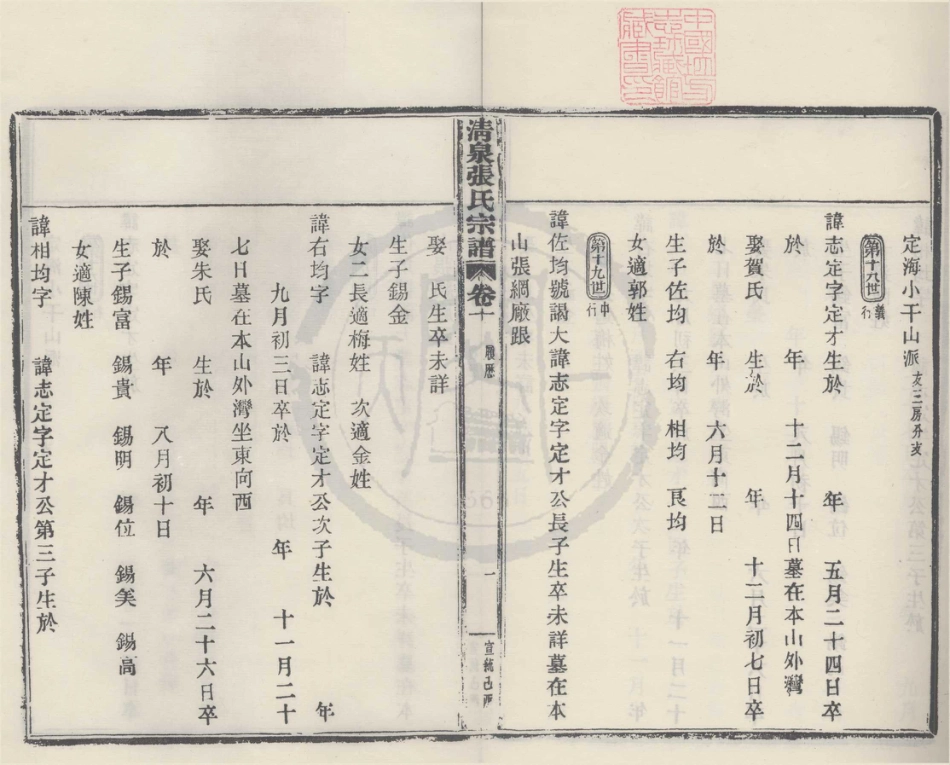 定海小干山派 亥三房分支
第十八世 義行
諱志定字定才生於 年 五月二十四日卒
於 年 十二月十四日墓在本山外灣
娶賀氏 生於 年 十二月初七日卒
於 年 六月十二日
生子佐均 右均 相均 良均
女適郭姓
第十九世 中行
諱佐均號謁大諱志定字定才公長子生卒未詳墓在本
山張網廠跟
清泉張氏宗譜 卷十 履歷 一 宣統己酉
娶 氏生卒未詳
生子錫金
女二長適梅姓 次適金姓
諱右均字 諱志定字定才公次子生於 年
九月初三日卒於 年 十一月二十
七日墓在本山外灣坐東向西
娶朱氏 生於 年 六月二十六日卒
於 年 八月初十日
生子錫富 錫貴 錫明 錫位 錫美 錫高
女適陳姓
諱相均字 諱志定字定才公第三子生於